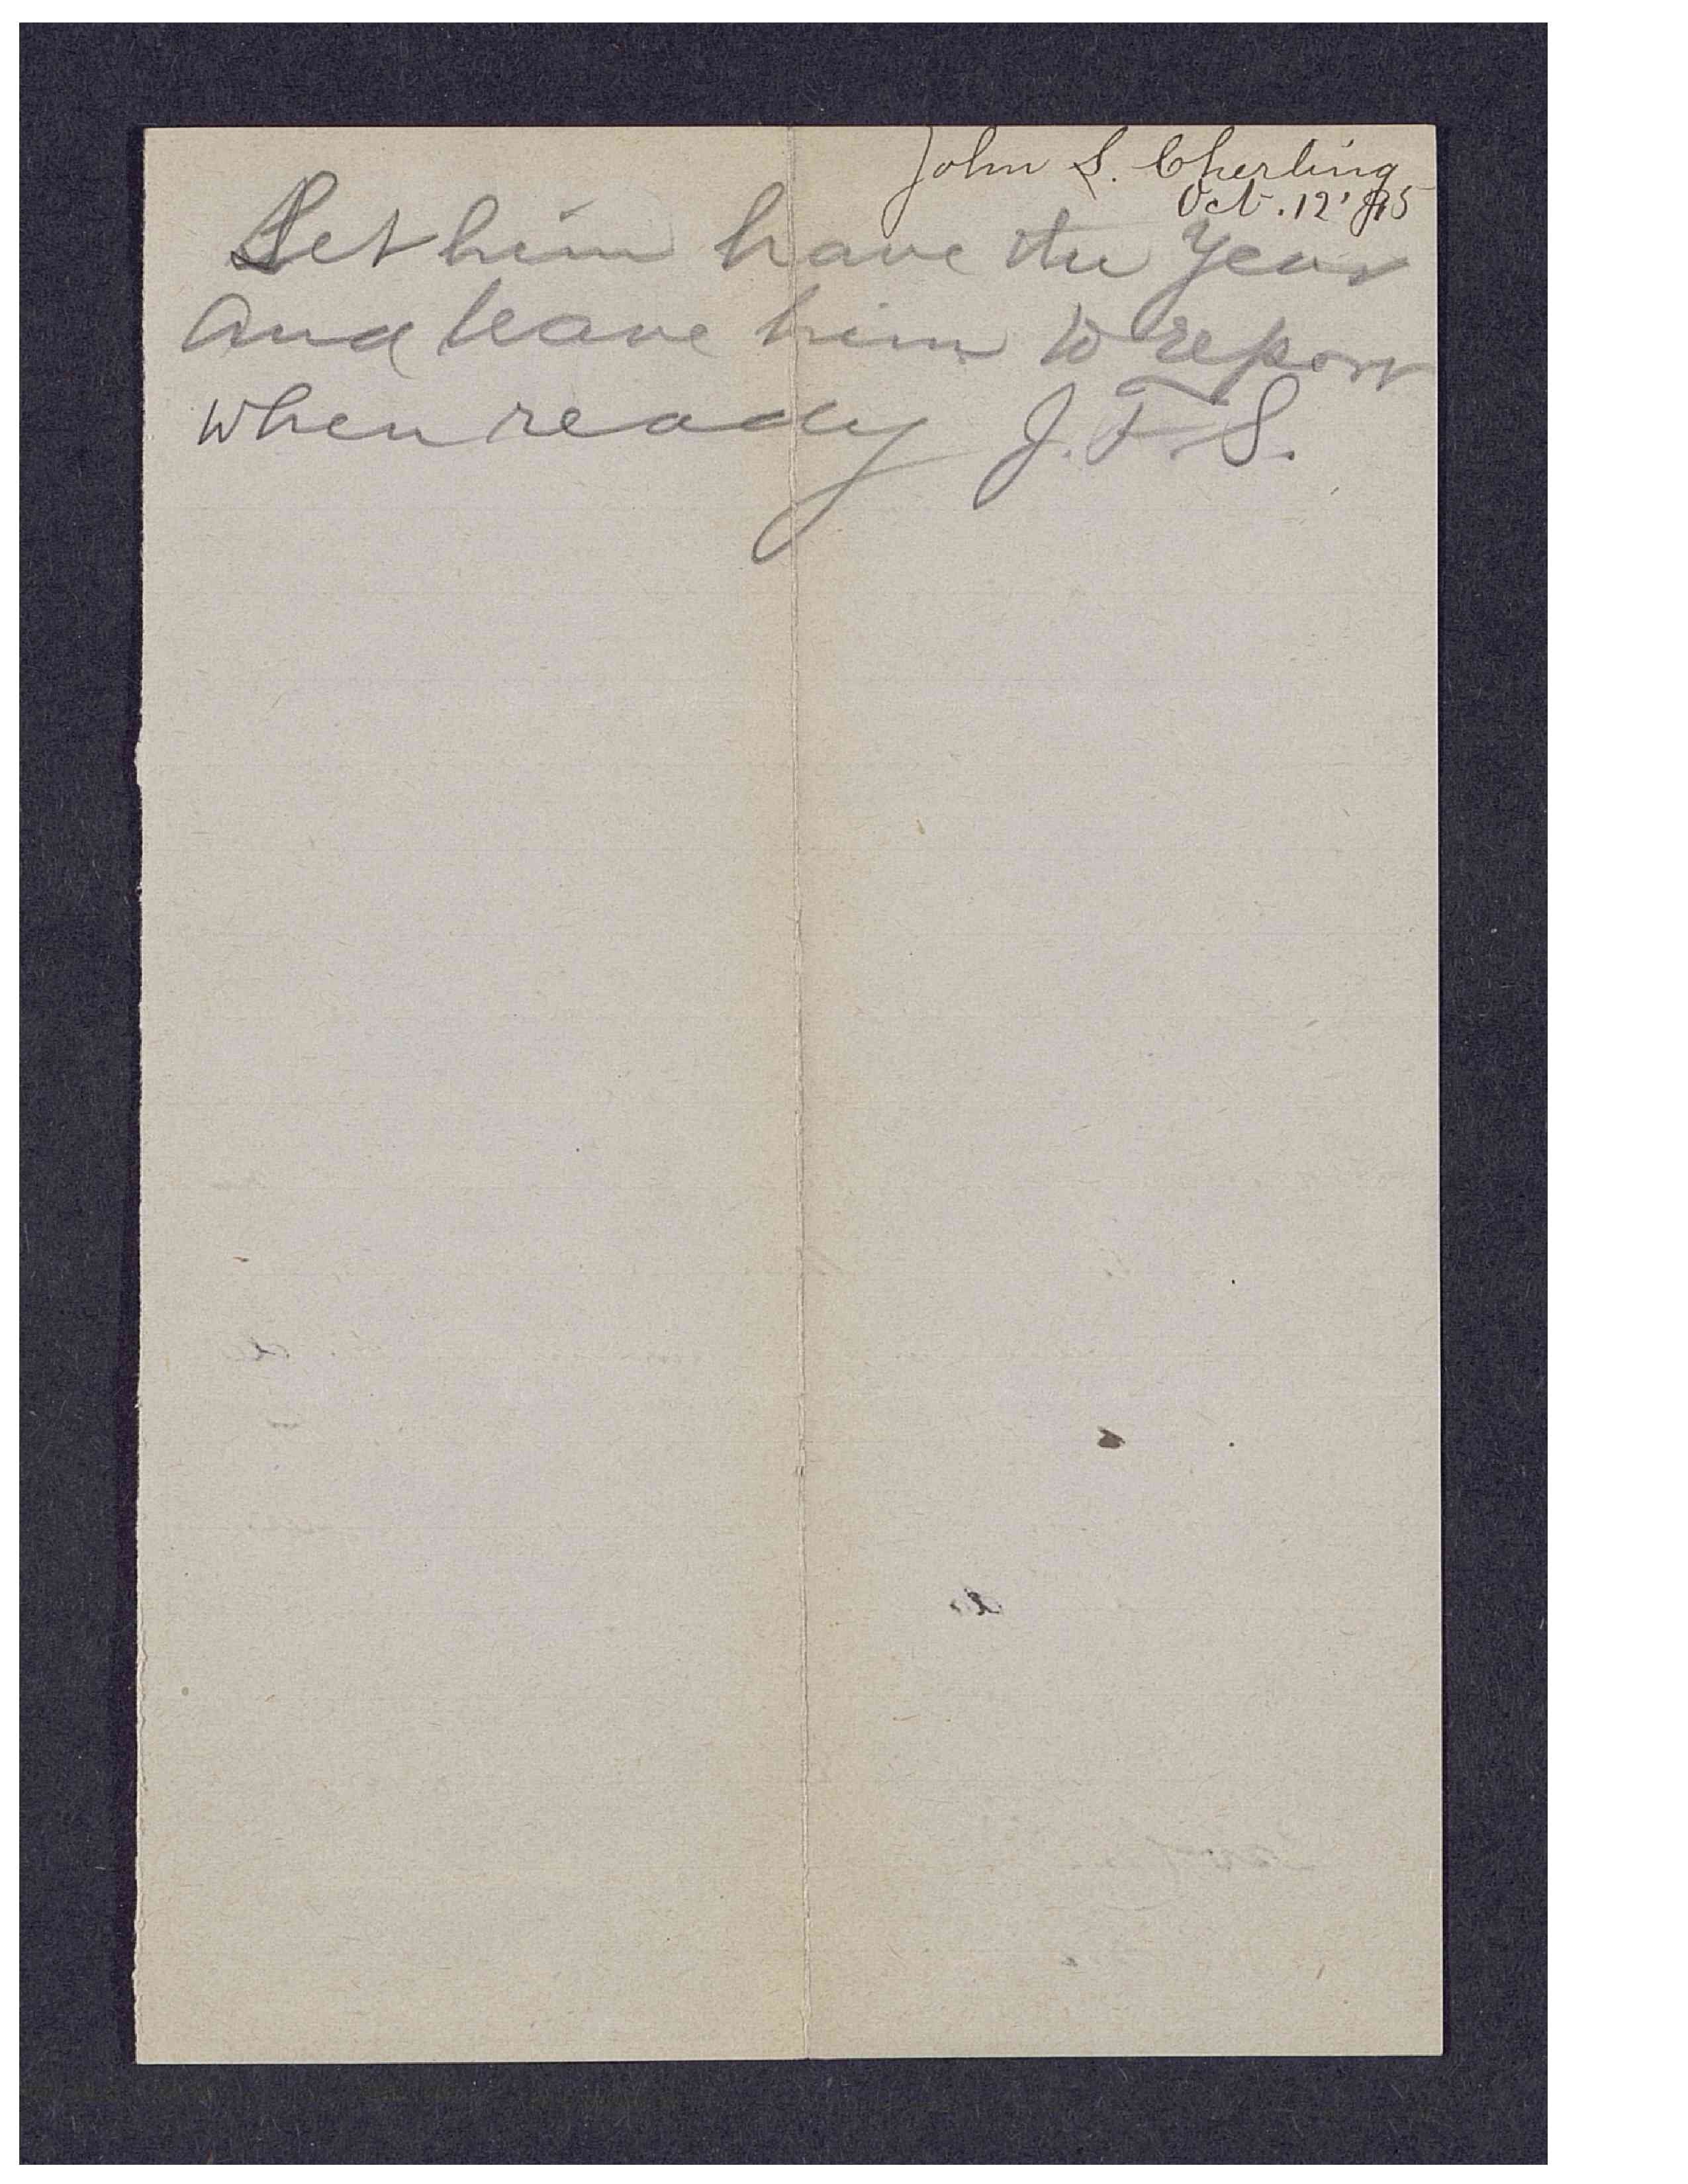 John S. Cherling
Oct. 12' 95
Let him have the year
and leave him to report
when ready J. F. S.